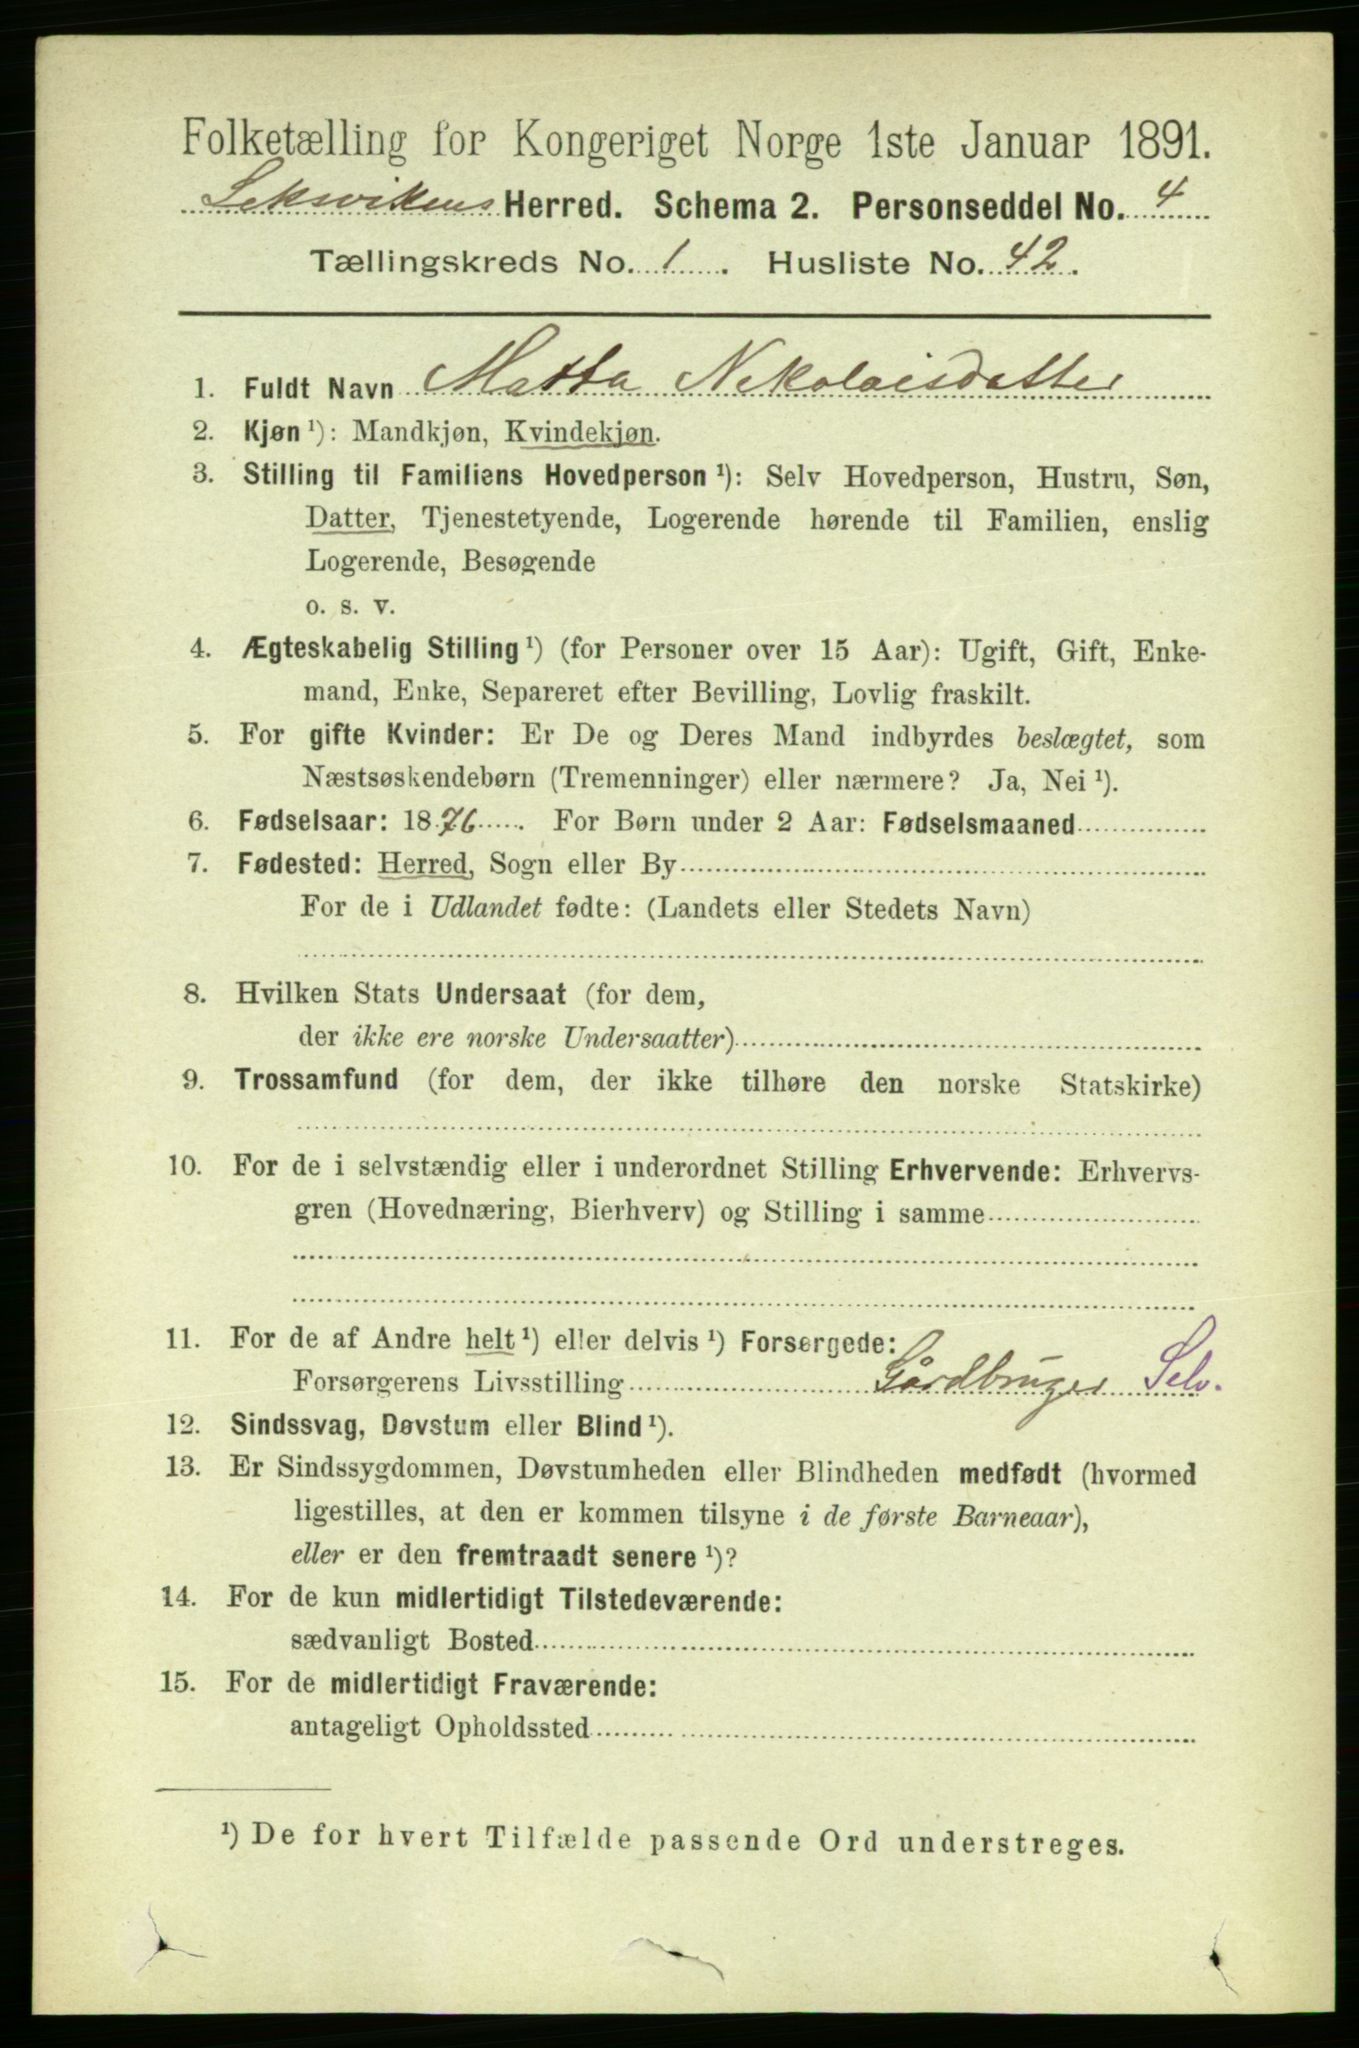 Folketælling for Kongeriget Norge 1ste Januar 1891.
Leksvikens Herred. Schema 2. Personseddel No. 4
Tællingskreds No. 1. Husliste No. 42.
1. Fuldt Navn Matta Nekolaisdatter
2. Kjøn ¹): Mandkjøn, Kvindekjøn.
3. Stilling til Familiens Hovedperson ¹): Selv Hovedperson, Hustru, Søn,
Datter, Tjenestetyende, Logerende hørende til Familien, enslig
Logerende, Besøgende
o. s. v.
4. Ægteskabelig Stilling ¹) (for Personer over 15 Aar): Ugift, Gift, Enke-
mand, Enke, Separeret efter Bevilling, Lovlig fraskilt.
5. For gifte Kvinder: Er De og Deres Mand indbyrdes beslægtet, som
Næstsøskendebørn (Tremenninger) eller nærmere? Ja, Nei ¹).
6. Fødselsaar: 1876. For Børn under 2 Aar: Fødselsmaaned
7. Fødested: Herred, Sogn eller By
For de i Udlandet fødte: (Landets eller Stedets Navn)
8. Hvilken Stats Undersaat (for dem,
der ikke ere norske Undersaatter)
9. Trossamfund (for dem, der ikke tilhøre den norske Statskirke)
10. For de i selvstændig eller i underordnet Stilling Erhvervende: Erhvervs-
gren (Hovednæring, Bierhverv) og Stilling i samme
11. For de af Andre helt ¹) eller delvis ¹) Forsørgede:
Forsørgerens Livsstilling Gårdbruger Selv.
12. Sindssvag, Døvstum eller Blind ¹).
13. Er Sindssygdommen, Døvstumheden eller Blindheden medfødt (hvormed
ligestilles, at den er kommen tilsyne i de første Barneaar),
eller er den fremtraadt senere ¹)?
14. For de kun midlertidigt Tilstedeværende:
sædvanligt Bosted
15. For de midlertidigt Fraværende:
antageligt Opholdssted
¹) De for hvert Tilfælde passende Ord understreges.